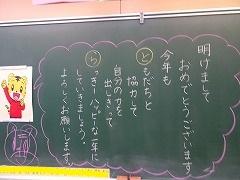 明けまして
おめでとうございます
今年も
ともだちと
協力して
自分の力を
出しきって
らっきーハッピーな一年に
していきましょう。
よろしくお願いします。